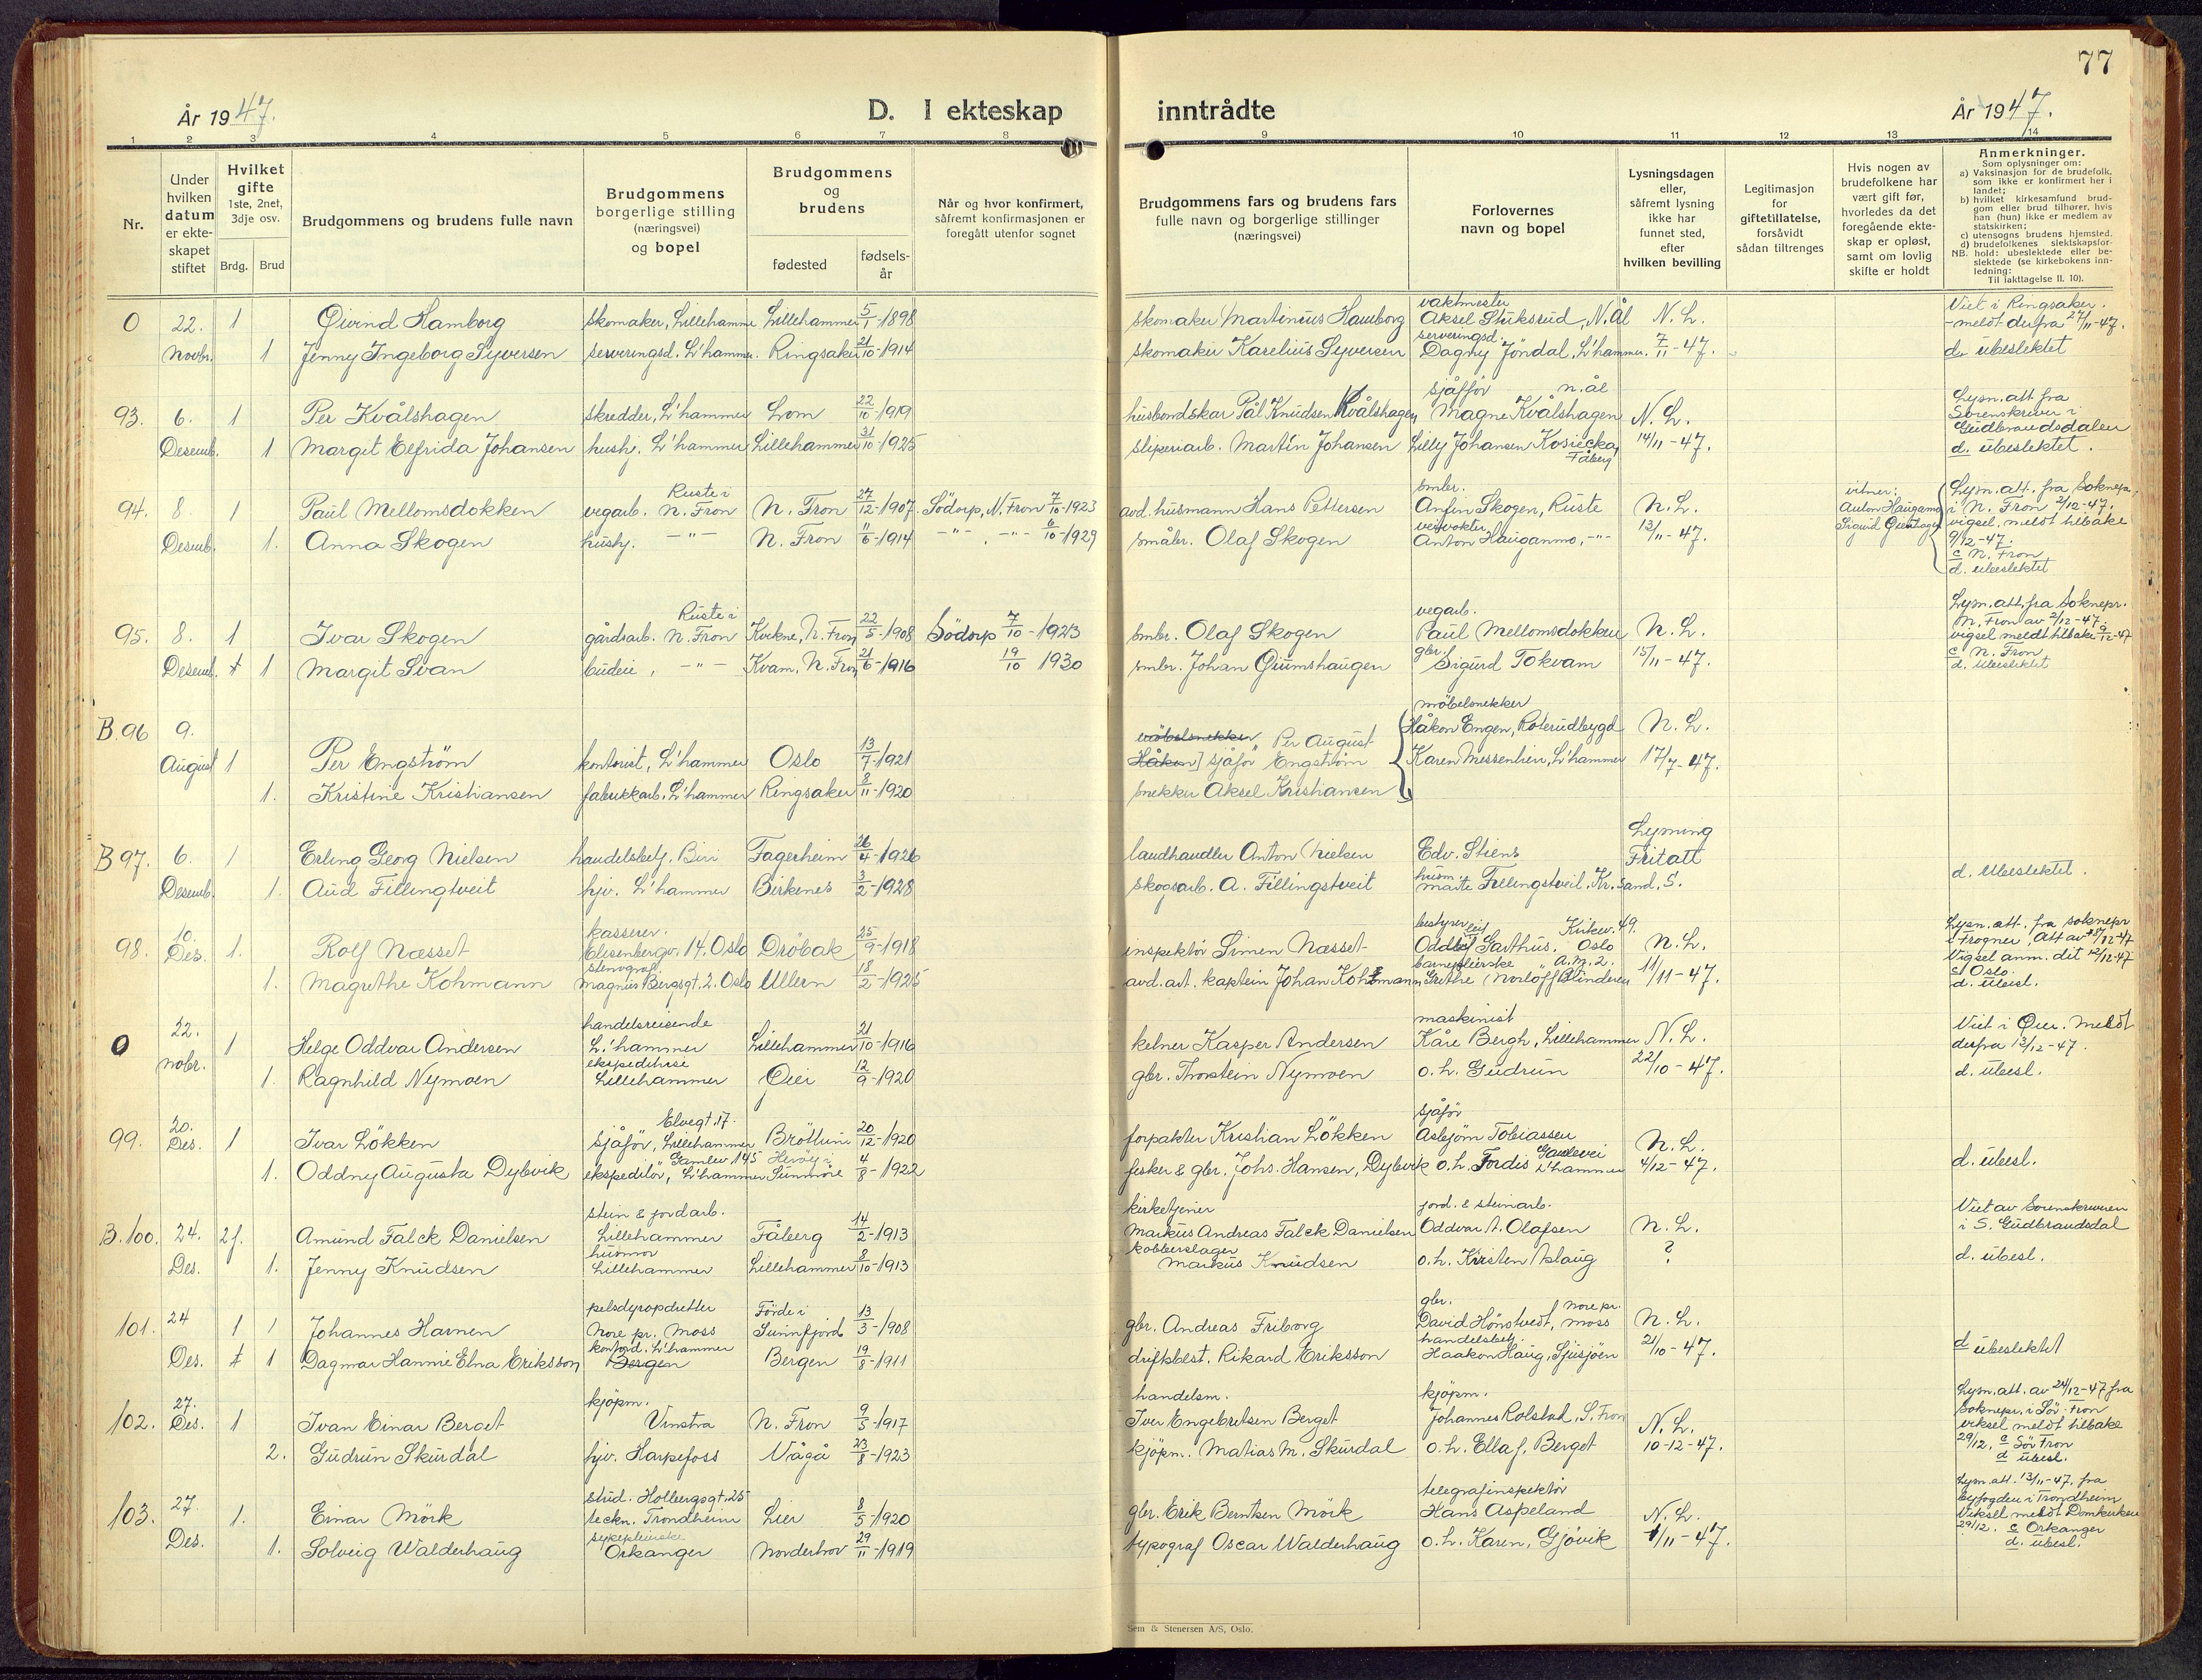 77
År 1947.
D. I ekteskap inntrådte
År 1947.
1 2 3 4 5 6 7 8 9 10 11 12 13 14
Nr.
Under hvilken datum er ekte-skapet stiftet
Hvilket gifte 1ste, 2net, 3dje osv.
Brdg. Brud
Brudgommens og brudens fulle navn
Brudgommens borgerlige stilling (næringsvei) og bopel
Brudgommens og brudens
fødested
fødsels-år
Når og hvor konfirmert, såfremt konfirmasjonen er foregått utenfor sognet
Brudgommens fars og brudens fars fulle navn og borgerlige stillinger (næringsvei)
Forlovernes navn og bopel
Lysningsdagen eller, såfremt lysning ikke har funnet sted, efter hvilken bevilling
Legitimasjon for giftetillatelse, forsåvidt sådan tiltrenges
Hvis nogen av brudefolkene har vært gift før, hvorledes da det foregående ekte-skap er opløst, samt om lovlig skifte er holdt
Anmerkninger.
Som oplysninger om:
a) Vaksinasjon for de brudefolk, som ikke er konfirmert her i landet;
b) hvilket kirkesamfund brud-gom eller brud tilhører, hvis han (hun) ikke er medlem av statskirken;
c) utensogns brudens hjemsted.
d) brudefolkenes slektskapsfor-hold: ubeslektede eller be-slektede (se kirkebokens inn-ledning:
NB. Til iakttagelse II. 10).
0 22. 1 Øivind Hamborg skomaker, Lillehammer Lillehammer 5/1-1898 skomaker Martinius Hamborg vaktmester Aksel Stuksrud, N. Ål N. L. Viet i Ringsaker. - meldt derfra 27/11-47.
Novbr. 1 Jenny Ingeborg Syversen serveringsd. L'hammer. Ringsaker 21/10-1914 skomaker Karelius Syversen serveringsd. Dagny Jöndal, L'hammer. 7/11-47. d. ubeslektet
93. 6. 1 Per Kvålshagen skredder, L'hammer Lom 22/10-1919 husbondskar Pål Knudsen Kvålshagen sjåfför n. ål Magne Kvålshagen N. L. Lysn. att fra Sorenskriver i Gudbrandsdalen
Desemb. 1 Margit Elfrida Johansen hushj. L'hammer Lillehammer 31/10-1925 sliperiarb. Martin Johansen Lilly Johansen Kosiecka, Fåberg 14/11-47. d. ubeslektet.
94. 8. 1 Paul Mellomsdokken vegarb. Ruste i N. Fron N. Fron 27/12-1907 Södorp, N. Fron 7/10-1923 avd. husmann Hans Pettersen smbr. Anfin Skogen, Ruste N. L. vitner: Anton Haugann Sigurd Lysn. att. fra Soknepr. i N. Fron 2/12-47. vigsel. meldt tilbake
Desemb. 1. Anna Skogen hushj. -"- N. Fron 11/6-1914 -"-. -"- 6/10-1929 småbr. Olaf Skogen Anton Hauganmo, -"- 13/11-47. 9/12-47. c N. Fron d. ubeslektet
95. 8. 1 Ivar Skogen gårdsarb. Ruste i N. Fron Kvikne, N. Fron 22/5-1908 Södorp 7/10-1923 smbr. Olaf Skogen vegarb. Paul Mellomsdokken N. L. Lysn. att. fra Soknepr. N. Fron av 2/12-47. vigsel meldt tilbake 9/12-47
Desemb. 1 1 Margit Svan budeie, -"- Kvam, N. Fron 21/6-1916 19/10 1930 smbr. Johan Grumshaugen gbr. Sigurd Tokvam 15/11-47. c N. Fron d. ubeslektet
B. 96 9. August 1 Per Engström kontorist, L'hammer Oslo 13/7-1921 møbelsnekker Håkon] Per August sjåför Engström möbelsnekker Håkon Engen, Roterudbygd N. L.
1. Kristine Kristiansen fabrikkarb. L'hammer Ringsaker 8/11-1920 snekker Aksel Kristiansen Karen Messenlien, L'hammer 17/7-47.
B 97. 6. 1 Erling Georg Nielsen handelsbetj. Biri Fagerheim 26/4-1926 landhandler Anton Nielsen Edv. Stiens Lysning Fritatt
Desemb. 1. Aud Fillingtveit hjv. L'hammer Birkenes 3/2-1928 skogsarb. A. Fillingstveit husm. Marte Fillingstveit, Kr. sand. S. d. ubeslektet.
98. 10. Des. 1. Rolf Næsset kasserer. Elisenbergv. 14. Oslo Dröbak 25/9-1918 inspektör Simen Næsset bestyrer Kirkev. 49. Garthus. Oslo N. L. Lysn. att. fra soknepr. i Frogner,
1. Magrethe Kohmann stenograf. Magnus Bergsgt. 2. Oslo Ullern 18/2-1925 avd. art. kaptein Johan Kohmann barnepleierske Grethe Norlöff Blindern 11/11-47. Vigsel anm. dit 12/12-47 c Oslo. d. ubesl.
0 22. nobr. 1 Helge Oddvar Andersen handelsreisende L.'hammer Lillehammer 21/10-1916 kelner Kasper Andersen maskinist Kåre Bergh, Lillehammer N. L. Viet i Øier. Meldt derfra 13/12-47.
1. Ragnhild Nymoen ekspeditrise Lillehammer Øier 12/9-1920 gbr. Thorstein Nymoen o. h. Gudrun 22/10-47. d. ubesl.
99. 20. Des. 1 Ivar Lökken Elvegt. 17. sjåför, Lillehammer Bröttum 20/12-1920 forpakter Kristian Lökken sjåför Asbjörn Tobiassen N. L.
1. Oddny Augusta Dybvik Gamlev. 145 ekspeditör, L'hammer Heröy i Sunmöre 4/8-1922 fisker & gbr. Johs. Hansen, Dybvik o. h. Tordis Gamlevei L'hammer 4/12-47. d. ubesl.
B. 100. 24. 2 f. Amund Falck Danielsen stein & jordarb. Lillehammer Fåberg 14/2-1913 kirketjener Markus Andreas Falck Danielsen jord. & steinarb. Oddvar A. Olafsen N. L. Viet av Sorenskriveren i S. Gudbrandsdal
Des. 1. Jenny Knudsen husmor Lillehammer Lillehammer 8/10-1913 kobberslager Markus Knudsen o. h. Kirsten Aslaug ? d. ubesl.
101. 24 1 1 Johannes Harnen pelsdyropdretter Nore pr. Moss Förde i Sunnfjord 13/3-1908 gbr. Andreas Friborg gbr. David Hönstvedt, nore pr. moss N. L.
Des. 1 1 Dagmar Hannie Elna Eriksson kontord. L'hammer Bergen Bergen 19/8-1911 driftsbest. Rikard Eriksson handelsbetj. Haakon Haug, Sjusjøen 21/10-47. d ubeslektet
102. 27. Des. 1 Ivan Einar Berget kjöpm. Vinstra N. Fron 9/5-1917 handelsm. Iver Engebretsen Berget kjöpm. Johannes Rolstad, S. Fron N. L. Lysn. att. av 24/12-47 fra Soknepr. i Sör-Fron viksel meldt tilbake
2. Gudrun Skurdal hjv. Harpefoss Vågå 23/8-1923 kjöpm. Matias M. Skurdal o. h. Ella f. Berget 10-12-47. 29/12. c Sör Fron d ubesl.
103. 27 1. Einar Mörk stud. Holbergsgt. 25 teckn. Trondheim Lier 8/5-1920 gbr. Erik Berntsen Mörk telegrafinspektör Hans Aspeland N. L. Lysn. att. 13/11-47, fra byfogden i Trondheim Viksel meldt Domkirken
Des. 1. Solveig Walderhaug sykepleierske Orkanger Norderhov 29/11-1919 typograf Oscar Walderhaug o. h. Karen, Gjøvik 1/11-47. 29/12. c Orkanger d. ubesl.
Sem & Stenersen A/S, Oslo.